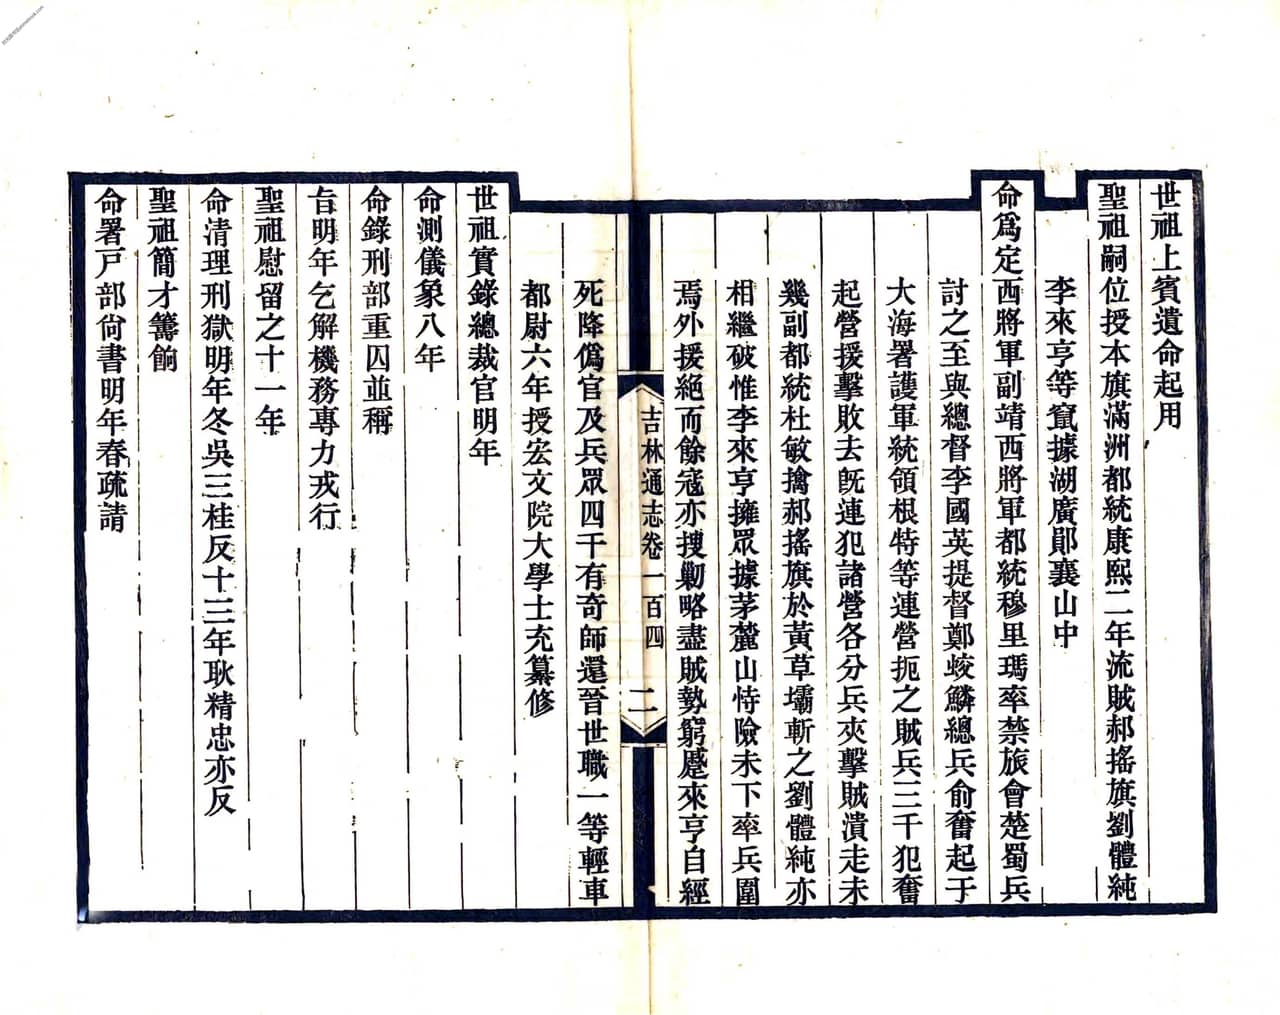 世祖上賓遺命起用
聖祖嗣位授本旗滿洲都統康熙二年流賊郝搖旗劉體純
李來亨等竄據湖廣鄖襄山中
命爲定西將軍副靖西將軍都統穆里瑪率禁旅會楚蜀兵
討之至與總督李國英提督鄭蛟鱗總兵俞奮起于
大海署護軍統領根特等連營扼之賊兵三千犯奮
起營援擊敗去旣連犯諸營各分兵夾擊賊潰走未
幾副都統杜敏擒郝搖旗於黃草壩斬之劉體純亦
相繼破惟李來亨擁眾據茅麓山恃險未下率兵圍
焉外援絕而餘寇亦搜勦略盡賊勢窮蹙來亨自經
吉林通志卷一百四
二
死降僞官及兵眾四千有奇師還晉世職一等輕車
都尉六年授宏文院大學士充纂修
世祖實錄總裁官明年
命測儀象八年
命錄刑部重囚並稱
旨明年乞解機務專力戎行
聖祖慰留之十一年
命清理刑獄明年冬吳三桂反十三年耿精忠亦反
聖祖簡才籌餉
命署戸部尙書明年春疏請